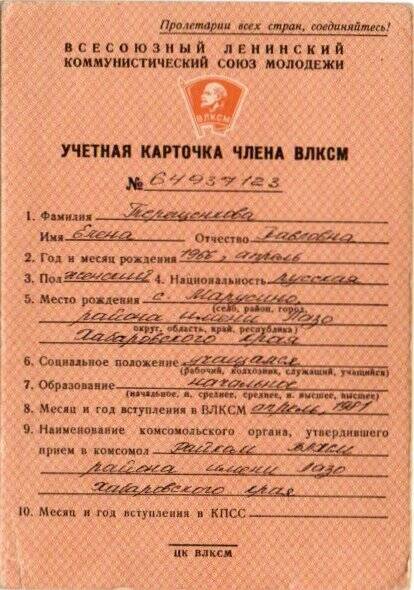 Пролетарии всех стран, соединяйтесь!
ВСЕСОЮЗНЫЙ ЛЕНИНСКИЙ
КОММУНИСТИЧЕСКИЙ СОЮЗ МОЛОДЕЖИ
ВЛКСМ
УЧЕТНАЯ КАРТОЧКА ЧЛЕНА ВЛКСМ
№ 64937123
1. Фамилия Терещенкова
Имя Елена Отчество Павловна
2. Год и месяц рождения 1966 г, апрель
3. Пол женский 4. Национальность русская
5. Место рождения с. Марусино,
(село, район, город,
района имени Лазо
округ, область, край, республика)
Хабаровского края
6. Социальное положение учащаяся
(рабочий, колхозник, служащий, учащийся)
7. Образование начальное
(начальное, н. среднее, среднее, н. высшее, высшее)
8. Месяц и год вступления в ВЛКСМ апрель, 1981
9. Наименование комсомольского органа, утвердившего
прием в комсомол райком ВЛКСМ
района имени Лазо
Хабаровского края
10. Месяц и год вступления в КПСС
ЦК ВЛКСМ